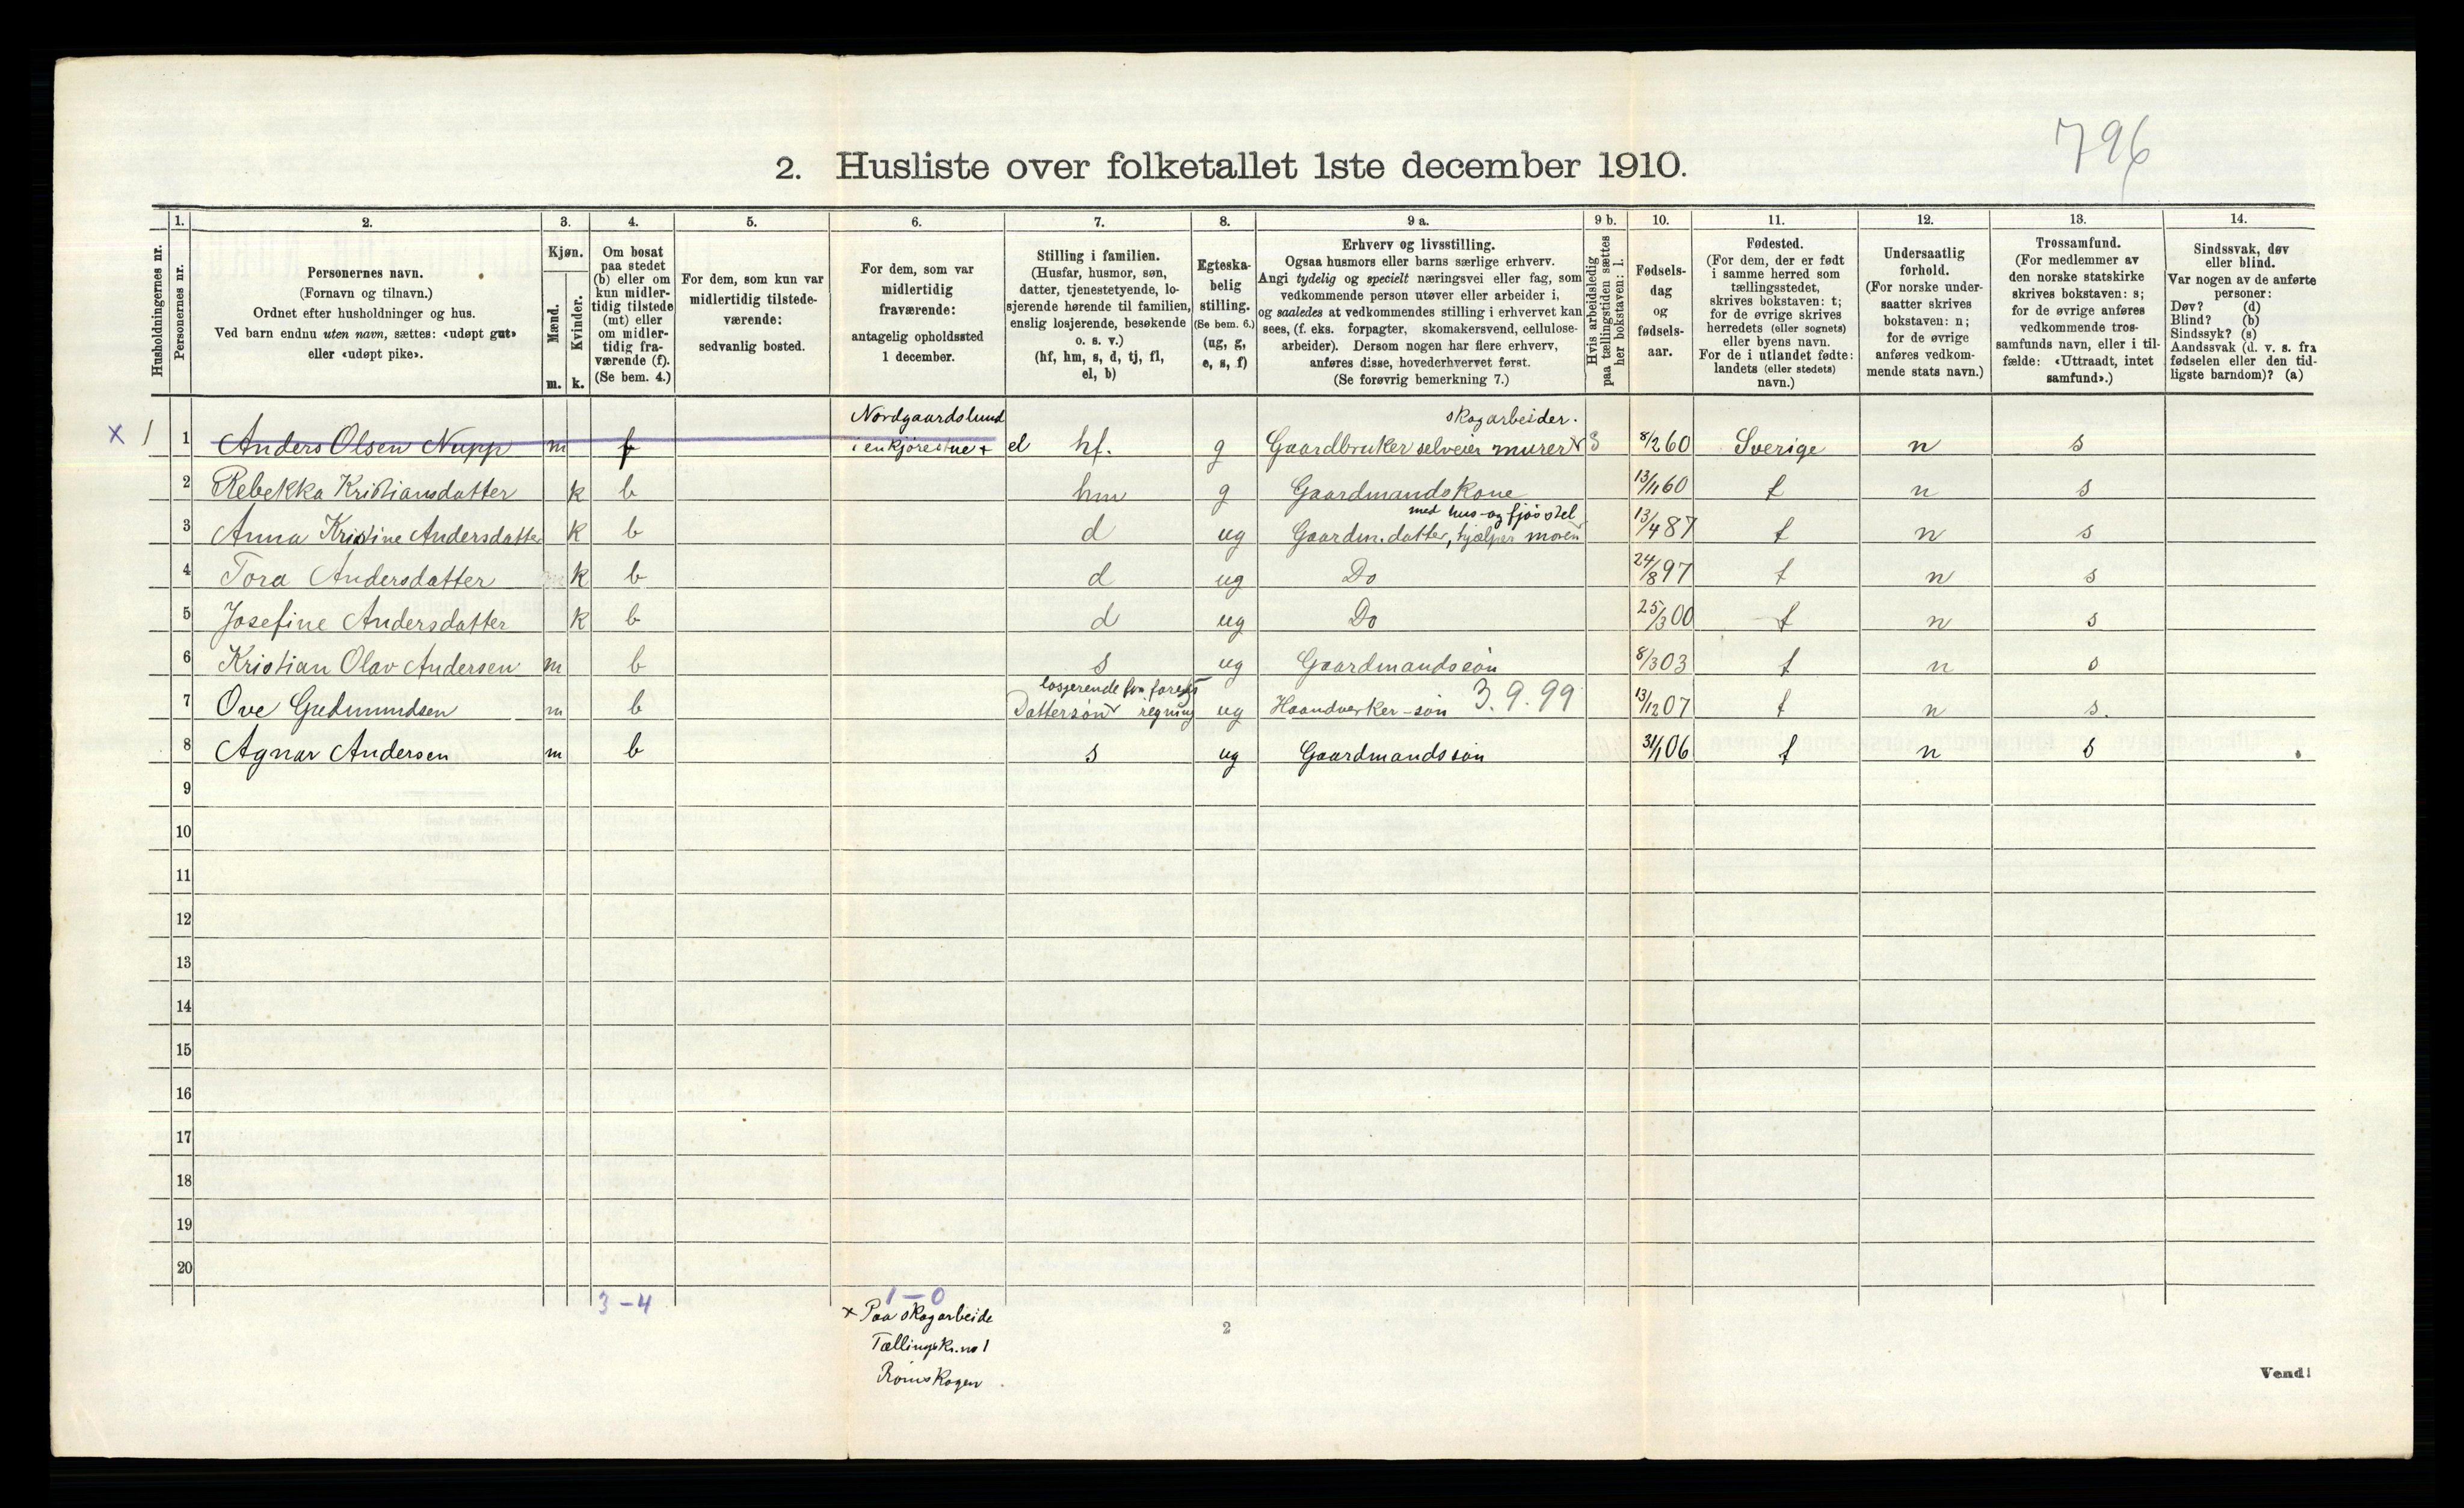 796
2. Husliste over folketallet 1ste december 1910.
Husholdningernes nr.
1.
Personernes nr.
2.
Personernes navn.
(Fornavn og tilnavn.)
Ordnet efter husholdninger og hus.
Ved barn endnu uten navn, sættes: «udøpt gut»
eller «udøpt pike».
3.
Kjøn.
Mænd.
m.
Kvinder.
k.
4.
Om bosat
paa stedet
(b) eller om
kun midler-
tidig tilstede
(mt) eller
om midler-
tidig fra-
værende (f).
(Se bem. 4.)
5.
For dem, som kun var
midlertidig tilstede-
værende:
sedvanlig bosted.
6.
For dem, som var
midlertidig
fraværende:
antagelig opholdssted
1 december.
7.
Stilling i familien.
(Husfar, husmor, søn,
datter, tjenestetyende, lo-
sjerende hørende til familien,
enslig losjerende, besøkende
o. s. v.)
(hf, hm, s, d, tj, fl,
el, b)
8.
Egteska-
belig
stilling.
(Se bem. 6.)
(ug, g,
e, s, f)
9 a.
Erhverv og livsstilling.
Ogsaa husmors eller barns særlige erhverv.
Angi tydelig og specielt næringsvei eller fag, som
vedkommende person utøver eller arbeider i,
og saaledes at vedkommendes stilling i erhvervet kan
sees, (f. eks. forpagter, skomakersvend, cellulose-
arbeider). Dersom nogen har flere erhverv,
anføres disse, hovederhvervet først.
(Se forøvrig bemerkning 7.)
9 b.
Hvis arbeidsledig
paa tællingstiden sættes
her bokstaven: l.
10.
Fødsels-
dag
og
fødsels-
aar.
11.
Fødested.
(For dem, der er født
i samme herred som
tællingsstedet,
skrives bokstaven: t;
for de øvrige skrives
herredets (eller sognets)
eller byens navn.
For de i utlandet fødte:
landets (eller stedets)
navn.)
12.
Undersaatlig
forhold.
(For norske under-
saatter skrives
bokstaven: n;
for de øvrige
anføres vedkom-
mende stats navn.)
13.
Trossamfund.
(For medlemmer av
den norske statskirke
skrives bokstaven: s;
for de øvrige anføres
vedkommende tros-
samfunds navn, eller i til-
fælde: «Uttraadt, intet
samfund».)
14.
Sindssvak, døv
eller blind.
Var nogen av de anførte
personer:
Døv? (d)
Blind? (b)
Sindssyk? (s)
Aandssvak (d. v. s. fra
fødselen eller den tid-
ligste barndom)? (a)
Nordgaardslund skogarbeider.
x 1 1 Anders Olsen Nupp m f i enkjørestue + el hf. g Gaardbruker selveier murer 3 8/2 60 Sverige n s
2 Rebekka Kristiansdatter k b hm g Gaardmandskone 13/11 60 t n s
med hus- og fjøsstel
3 Anna Kristine Andersdatter k b d ug Gaardm. datter, hjælper moren 13/4 87 t n s
4 Tora Andersdatter k b d ug Do 24/8 97 t n s
5 Josefine Andersdatter k b d ug Do 25/3 00 t n s
6 Kristian Olav Andersen m b s ug Gaardmandssøn 8/3 03 t n s
losjerende for
7 Ove Gudmundsen m b Dattersøn regning ug Haandverker-søn 3.9.99 13/12 07 t n s.
8 Agnar Andersen m b s ug Gaardmandssøn 31/1 06 t n s
9
10
11
12
13
14
15
16
17
18
19
20
3 - 4 1 - 0
x Paa skogarbeide
Tællingskr. no 1
Rømskogen
2
Vend!